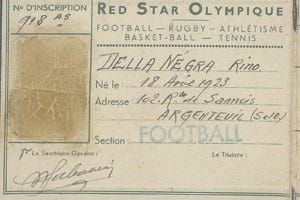 Nº D'INSCRIPTION
918 AS
RED STAR OLYMPIQUE
FOOTBALL - RUGBY - ATHLÉTISME
BASKET-BALL - TENNIS
DELLA NÉGRA Rino
Né le : 18 Août 1923
Adresse 102. Rte de Sannois
ARGENTEUIL (S&O)
Section : FOOTBALL
Le Secrétaire Général :
Le Titulaire :